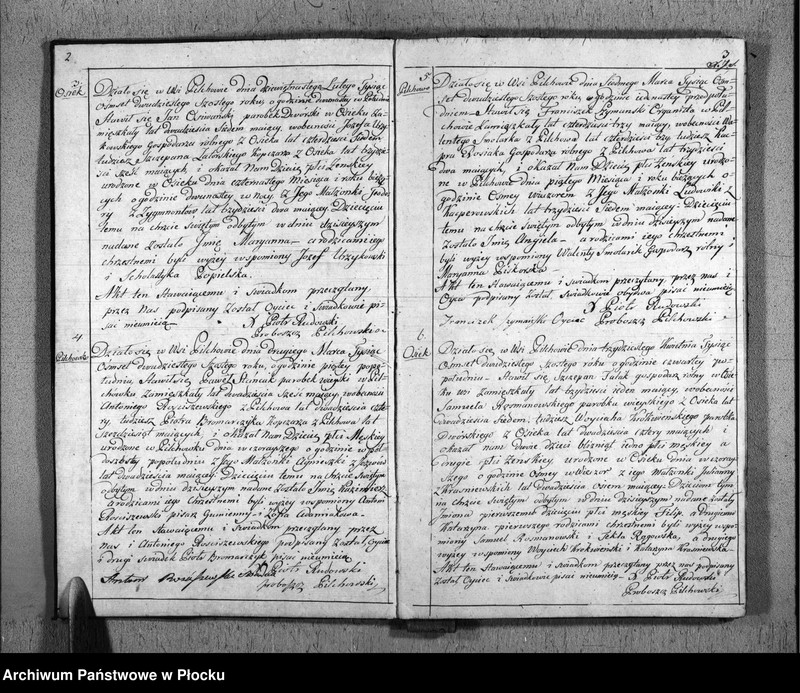 2
3
Osiek
Działo się w Wsi Pilchowie dnia dziewiętnastego Lutego Tysiąc
Osmset dwudziestego Szostego roku, o godzinie dwunastey w Południe
Stawił się Jan Osiwański, parobek Dworski w Osieku Za-
mięszkały lat dwadziescia Siedem maiący, w obecności Jozefa
Gospodarza rolnego z Osieka lat czterdziesci
tudziesz Szczepana Latoskiego Kopczarza z Osieka lat trzydzie-
sci sześć maiących, i okazał Nam Dziecię płci Żenskiey
urodzone w Osieku dnia czternastego Miesiąca i roku bieżą-
cych o godzinie dwunastey w nocy, z Jego Małżonki
z Zygmontow lat trzydziesci dwa maiącey. Dziecięciu
temu na chrzcie Swiętym odbytym w dniu dzisieyszym
nadane Zostało Imię Maryanna – a rodzicami iego
chrzestnemi byli wyżey wspomiony Jozef
i Scholastyka Pospielska.
Akt ten Stawaiącemu i Swiadkom przeczytany,
przez Nas podpisany Został Oyciec i Swiadkowie pi-
sać nieumieią X Piotr Rudowski
Proboszcz Pilchowski
4
Pilchowo
Działo się w Wsi Pilchowie dnia drugiego Marca Tysiąc
Osmset Dwudziestego Szostego roku, o godzinie piątey popo-
łudniu Stawił się Paweł parobek wieyski w Pil-
chowku Zamięszkały lat dwadziescia Sześć maiący w obecności
Antoniego Rosciszewskiego z Pilchowa lat dwadziescia czte-
ry, tudziesz Piotra Bromarczyka Kopczarza z Pilchowa lat
Szescdziesiąt maiących, i okazał Nam Dziecię płci Męskiey
urodzone w Pilchowku dnia wczorayszego o godzinie w poł
popołudniu z Jego Małżonki Agnieszki z
lat dwadziescia maiącey. Dziecięciu temu na chrzcie Swiętym
odbytym w dniu dzisieyszym nadane Zostało Imię Kazimierz
a rodzicami iego chrzestnemi byli wyżey wspomiony Antoni
Rosciszewski pisarz Gumienny i Zofia Adamiakowa.
Akt ten Stawaiącemu i Swiadkom przeczytany przez
nas i Antoniego Rosciszewskiego podpisany został, Oyciec
i drugi Swiadek Piotr Bromarczyk pisać nieumieią
X Piotr Rudowski
Proboszcz Pilchowski
5
Pilchowo
Działo się w Wsi Pilchowie dnia Siodmego Marca Tysiąc Osm-
set dwudziestego Szostego roku, o godzinie iedenastey przed połu-
dniem – Stawił się Franciszek Szymanski Organista w Pil-
chowie Zamięszkały lat czterdziesci trzy maiący, w obecności Wa-
lentego Smolarka z Pilchowa lat czterdziesci trzy tudziesz Kac-
pra Rosiaka Gospodarza rolnego z Pilchowa lat trzydziesci
dwa maiących, i okazał Nam Dziecię płci Żenskiey urodzo-
ne w Pilchowie dnia piątego Miesiąca i roku bieżących o
godzinie Osmey wieczorem z Jego Małżonki Ludowiki z
Kacperowskich lat trzydziesci Siedem maiącey: Dziecięciu
temu na chrzcie Swiętym odbytym w dniu dzisieyszym nadane
Zostało Imię Angiela – a rodzicami iego chrzestnemi
byli wyżey wspomiony Walenty Smolarek Gospodarz rolny i
Maryanna
Akt ten Stawaiącemu i Swiadkom przeczytany przez nas i
Oyca podpisany Został, Swiadkowie obydwa pisać nieumieią
X Piotr Rudowski
Franciszek Szymański Oyciec Proboszcz Pilchowski
6
Osiek
Działo się w Wsi Pilchowie dnia trzydziestego Kwietnia Tysiąc
Osmset dwudziestego Szostego roku o godzinie czwartey po-
południu – Stawił się Szczepan Gospodarz rolny w Osie-
ku Zamięszkały lat trzydziesci ieden maiący, w obecności
Samuela Rosmanowskiego parobka wieyskiego z Osieka lat
dwadziescia Siedem, tudziesz Woyciecha Krokwienskiego parobka
Dworskiego z Osieka lat dwadziescia cztery maiących i
okazał nam dwoie dzieci bliznięt iedno płci męskiey a
drugie płci żenskiey urodzone w Osieku dnia wczoray-
szego o godzinie Osmey wieczor z iego Małżonki Julianny
z Krasniewskich lat dwadziescia Osiem maiącey. Dzieciom tym
na chrzcie Swiętym odbytym w dniu dzisieyszym nadane Zostały
Imiona pierwszemu dziecięciu płci męskiey Filip, a drugiemu
Katarzyna pierwszego rodzicami chrzestnemi byli wyżey wspo-
miony Samuel Rosmanowski i Tekla Rzgowska, a drugiego
wyżey wspomiony Woyciech Krokwienski i Katarzyna Krasniewska
Akt ten Stawaiącemu i Swiadkom przeczytany przez nas podpisany
Został Oyciec i Swiadkowie pisać nieumieią – X Piotr Rudowski
Proboszcz Pilchowski
Archiwum Państwowe w Płocku